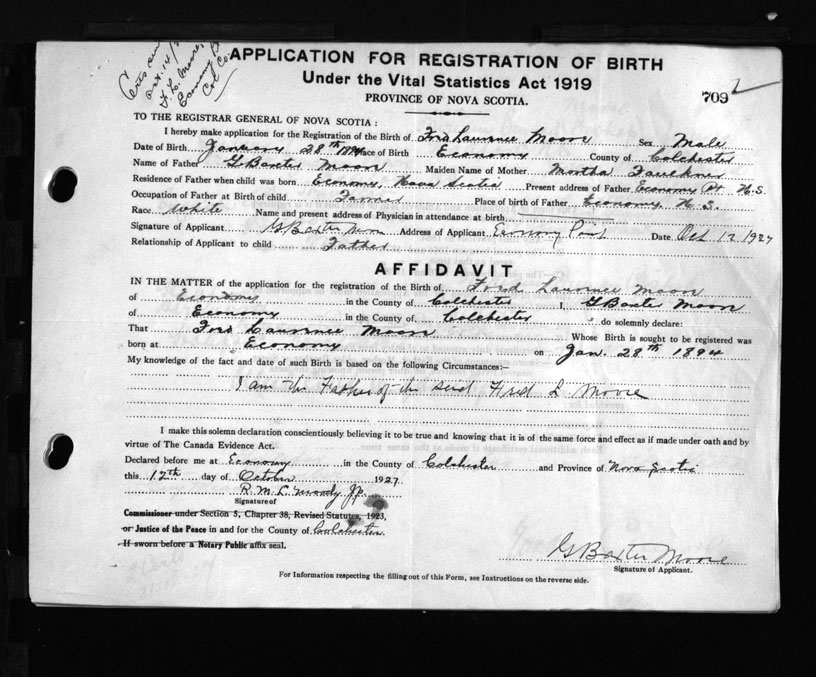 Certs sent
Oct. 14/
F. L. Moore,
Economy
Col. Co.
APPLICATION FOR REGISTRATION OF BIRTH
Under the Vital Statistics Act 1919
709
PROVINCE OF NOVA SCOTIA.
TO THE REGISTRAR GENERAL OF NOVA SCOTIA :
I hereby make application for the Registration of the Birth of Ford Laurence Moore Sex Male
Date of Birth January 28th 1894 Place of Birth Economy County of Colchester
Name of Father G Baxter Moore Maiden Name of Mother Martha Faulkner
Residence of Father when child was born Economy, Nova Scotia Present address of Father Economy Pt N.S.
Occupation of Father at Birth of child Farmer Place of birth of Father Economy, N.S.
Race White Name and present address of Physician in attendance at birth
Signature of Applicant G Baxter Moore Address of Applicant Economy Point Date Oct 12 1927
Relationship of Applicant to child Father
AFFIDAVIT
IN THE MATTER of the application for the registration of the Birth of Ford Laurence Moore
of Economy in the County of Colchester I, G Baxter Moore
of Economy in the County of Colchester do solemnly declare:
That Ford Laurence Moore Whose Birth is sought to be registered was
born at Economy on Jan. 28th 1894
My knowledge of the fact and date of such Birth is based on the following Circumstances:—
I am the Father of the said Ford L Moore
I make this solemn declaration conscientiously believing it to be true and knowing that it is of the same force and effect as if made under oath and by
virtue of The Canada Evidence Act.
Declared before me at Economy in the County of Colchester and Province of Nova Scotia
this 12th day of October 1927.
R. M. L. Moody J.P.
Signature of
Commissioner under Section 5, Chapter 38, Revised Statutes, 1923,
or Justice of the Peace in and for the County of Colchester
If sworn before a Notary Public affix seal.
G Baxter Moore
Signature of Applicant.
For Information respecting the filling out of this Form, see Instructions on the reverse side.